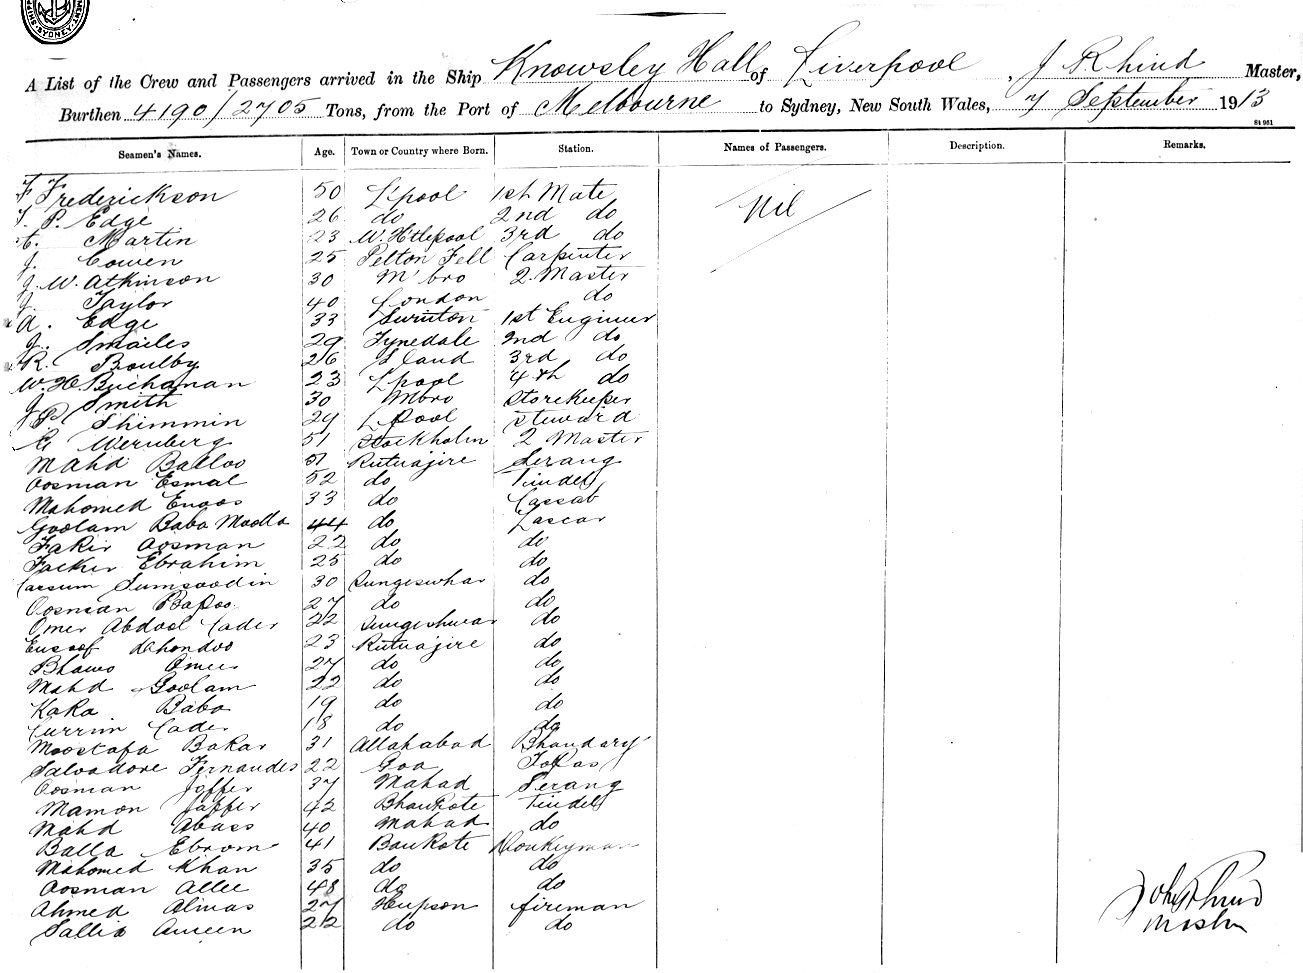 SYDNEY
A List of the Crew and Passengers arrived in the Ship Knowsley Hall of Liverpool, J Rhind Master,
Burthen 4190/2705 Tons, from the Port of Melbourne to Sydney, New South Wales, 7 September 1913
St 961
Seamen's Names. Age. Town or Country where Born. Station. Names of Passengers. Description. Remarks.
F Frederickson 50 L'pool 1st Mate Nil
P. Edge 26 do 2nd do
Martin 23 W. H'tlepool 3rd do
J. Cowen 25 Pelton Fell Carpenter
J. W. Atkinson 30 M'bro 2. Master
J. Taylor 40 London do
A. Edge 33 Swinton 1st Engineer
J. Smailes 29 Tynedale 2nd do
R. Boulby 26 S'land 3rd do
W. H. Buchanan 23 L'pool 4th do
J. Smith 30 Mbro Storekeeper
J P Shimmin 29 L'pool Steward
Wernberg 51 Stockholm 2 Master
Mahd Balloo 51 Rutnajire Serang
Oosman Esmal 52 do Tindel
Mahomed Enoos 33 do Cassab
Goolam Baba Moolla 44 do Lascar
Fakir Oosman 22 do do
Facker Ebrahim 25 do do
Carsum Sumsoodin 30 Sungeswhar do
Oosman Bapoo 27 do do
Omer Abdool Cader 22 Sungeshwar do
Eusoof Dhondoo 23 Rutnajire do
Bhawo 27 do do
Mahd Goolam 22 do do
Kaka Baba 19 do do
Currim Cader 18 do do
Moostafa Bakar 31 Allahabad Bhandary
Salvadore Fernandes 22 Goa Topas
Oosman Joffer 37 Mahad Serang
Mamon Jaffer 42 Bhankote Tindel
Mahd Abass 40 Mahad do
Balla Ebrom 41 Bankote Donkeyman
Mahomed Khan 35 do do
Oosman Allee 48 do do
Ahmed Almas 27 fireman
Ameen 22 do do
John Rhind
Master